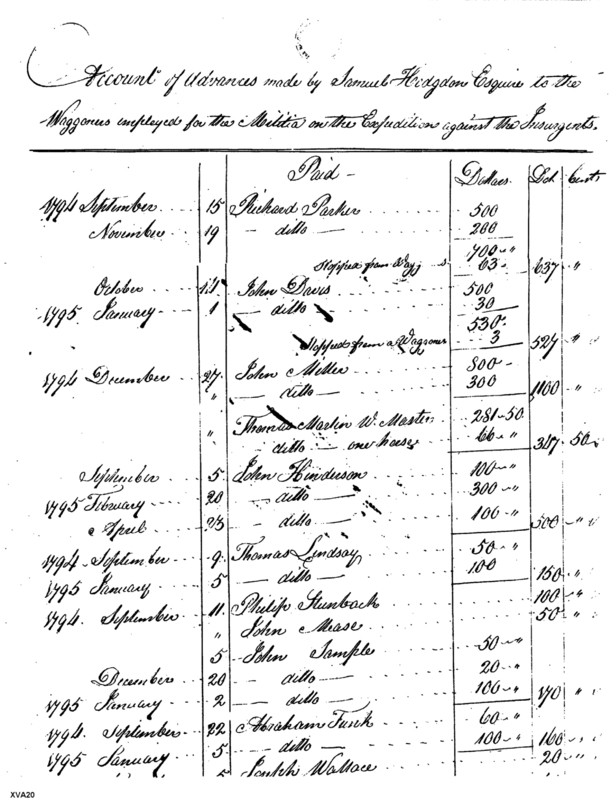 Account of Advances made by Samuel Hodgdon Esquire to the
Waggoners employed for the Militia on the Expedition against the Insurgents.
Paid - Dollars. Dol Cents
1794 September 15 Richard Parker 500
November 19 - ditto - 200
700 "
Stopped from 63 637 "
October 14 John Davis 500
1795 January 1 - ditto 30
530
Stopped from a Waggoner 3 527 "
1794 December 27 John Miller 800
" - ditto - 300 1100 "
" Thomas Martin W. Master 281-50
ditto - one horse 66 " 347 50
September 5 John Hinderson 100 "
1795 February 20 - ditto - 300 "
April 23 - ditto - 100 " 500 "
1794 September 9 Thomas Lindsay 50 "
1795 January 5 - ditto - 100 150 "
1794 September 11 Philip Stunback 100 "
" John Mease 50 "
5 John Sample 50 "
December 20 - ditto - 20 "
1795 January 2 - ditto - 100 " 170 "
1794 September 22 Abraham Funk 60 "
1795 January 5 - ditto - 100 " 160 "
5 Joseph Wallace 20 "
XVA20